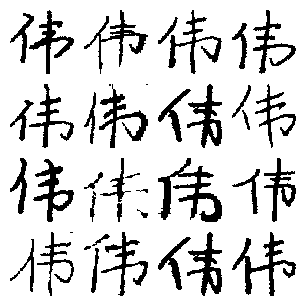 伟伟伟伟
伟伟伟伟
伟伟伟伟
伟伟伟伟